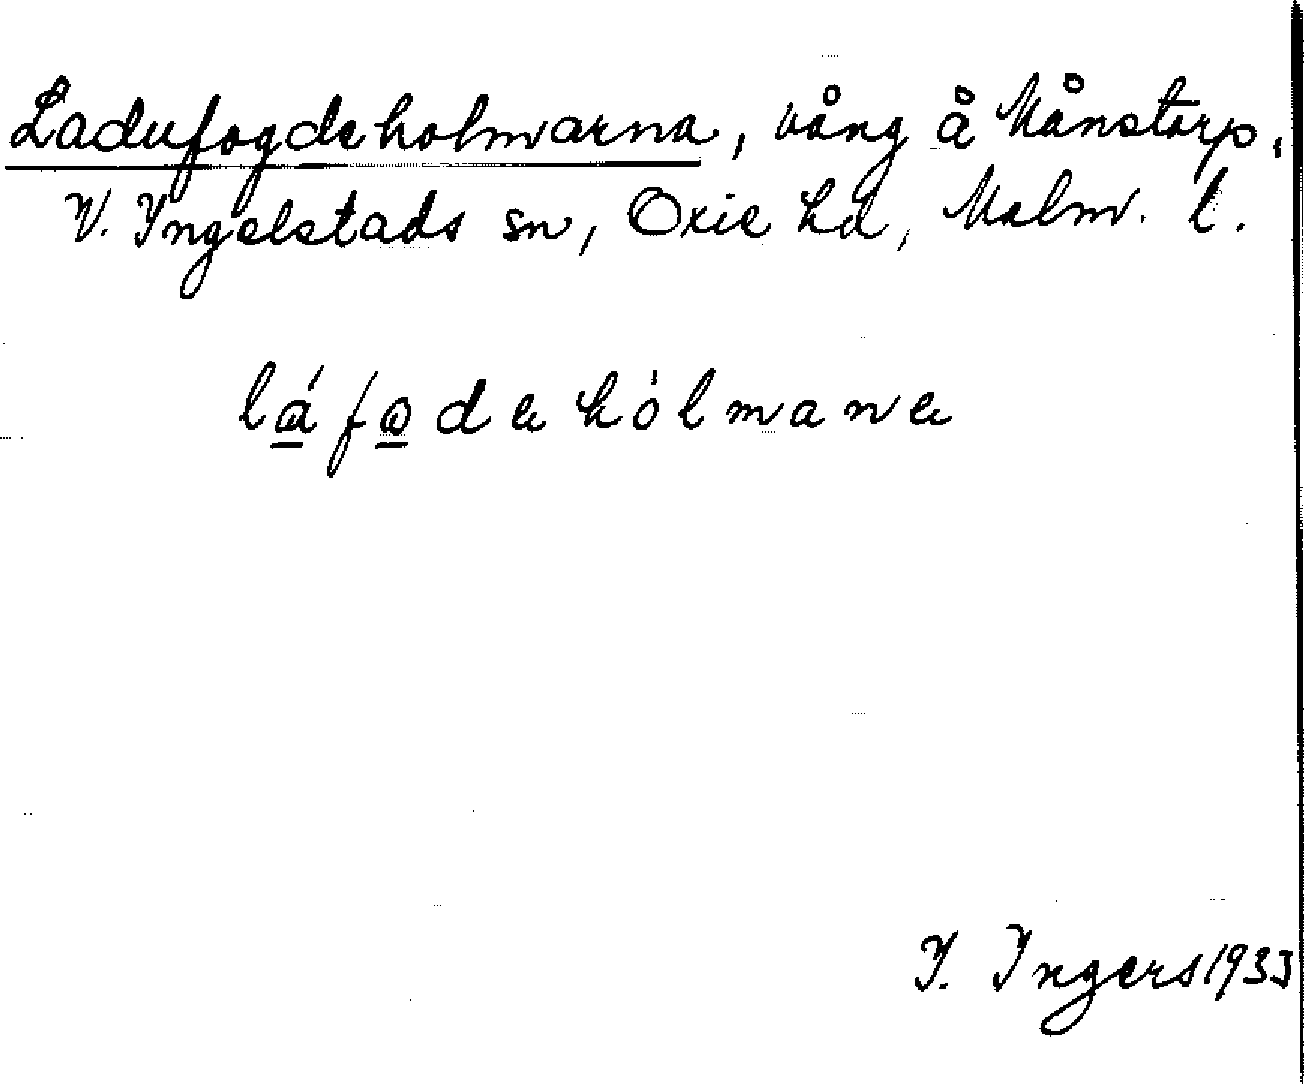 Ladufogdeholmarna, vång å Månstorp,
V. Ingelstads sn, Oxie hd, Malm. l.
láfodehólmana
I. Ingers 1933